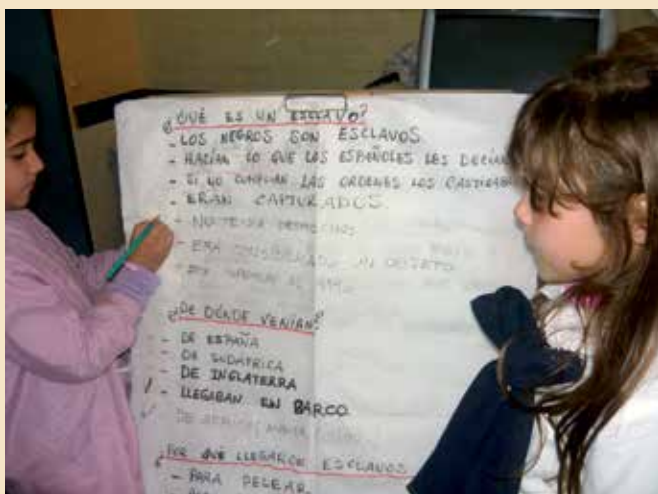 ¿QUÉ ES UN ESCLAVO?
- LOS NEGROS SON ESCLAVOS
- HACÍAN LO QUE LOS ESPAÑOLES LES DECÍAN
- SI NO CUMPLIAN LAS ORDENES LOS CASTIGABA
- ERAN CAPTURADOS.
- NO TENIA DERECHOS
- ERA CONSIDERADO UN OBJETO
¿DE DÓNDE VENÍAN?
- DE ESPAÑA
- DE SUDAFRICA
- DE INGLATERRA
- LLEGABAN EN BARCO.
DE
¿POR QUÉ LLEGARON ESCLAVOS
- PARA PELEAR